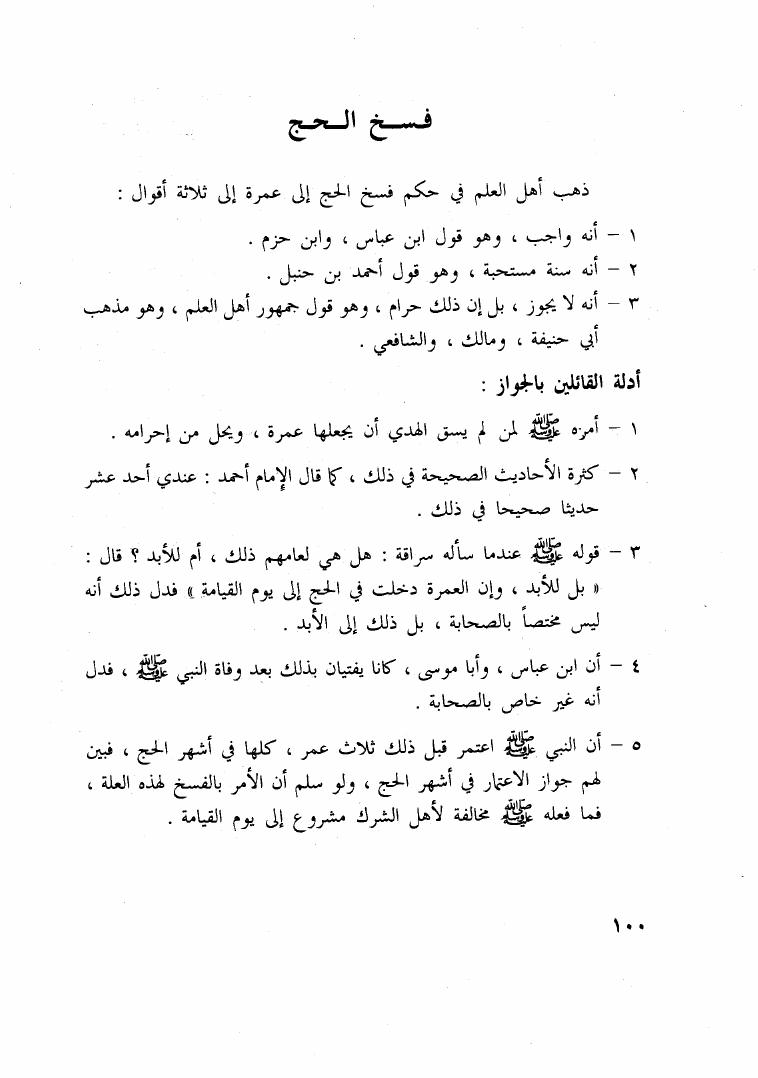 فسخ الحج
ذهب أهل العلم في حكم فسخ الحج إلى عمرة إلى ثلاثة أقوال :
١ – أنه واجب ، وهو قول ابن عباس ، وابن حزم .
٢ – أنه سنة مستحبة ، وهو قول أحمد بن حنبل .
٣ – أنه لا يجوز ، بل إن ذلك حرام ، وهو قول جمهور أهل العلم ، وهو مذهب
أبي حنيفة ، ومالك ، والشافعي .
أدلة القائلين بالجواز :
١ – أمره ﷺ لمن لم يسق الهدي أن يجعلها عمرة ، ويحل من إحرامه .
٢ – كثرة الأحاديث الصحيحة في ذلك ، كما قال الإمام أحمد : عندي أحد عشر
حديثا صحيحا في ذلك .
٣ – قوله ﷺ عندما سأله سراقة : هل هي لعامهم ذلك ، أم للأبد ؟ قال :
« بل للأبد ، وإن العمرة دخلت في الحج إلى يوم القيامة » فدل ذلك أنه
ليس مختصاً بالصحابة ، بل ذلك إلى الأبد .
٤ – أن ابن عباس ، وأبا موسى ، كانا يفتيان بذلك بعد وفاة النبي ﷺ ، فدل
أنه غير خاص بالصحابة .
٥ – أن النبي ﷺ اعتمر قبل ذلك ثلاث عمر ، كلها في أشهر الحج ، فبين
لهم جواز الاعتمار في أشهر الحج ، ولو سلم أن الأمر بالفسخ لهذه العلة ،
فما فعله ﷺ مخالفة لأهل الشرك مشروع إلى يوم القيامة .
١٠٠